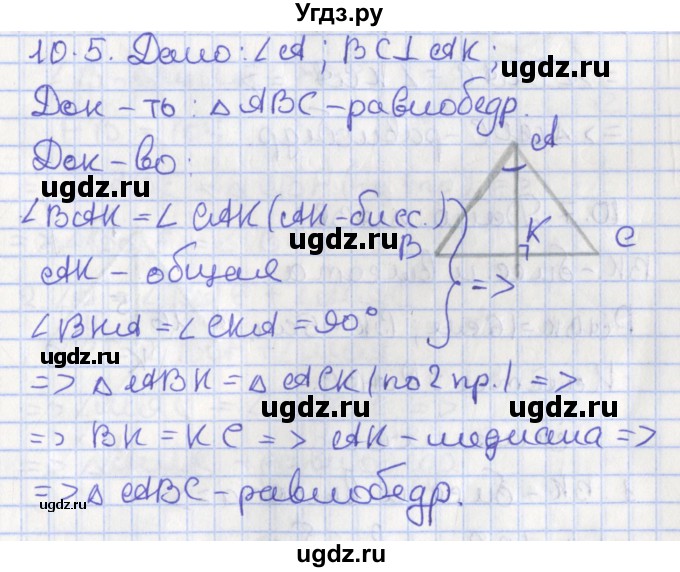 Угдз.ру
10.5. Дано: ∠A; BC⊥AK;
Док-ть: △ABC-равнобедр.
Док-во:
ugdz.ru
ugdz.ru
A
∠BAK = ∠CAK (AK-бисс.)
B
K
C
ugdz.ru
AK - общая
=>
∠BKA = ∠CKA = 90°
ugdz.ru
ugdz.ru
=> △ABK = △ACK (по 2 пр.) =>
ugdz.ru
ugdz.ru
=> BK = KC => AK - медиана =>
ugdz.ru
=> △ABC-равнобедр.
ugdz.ru
ugdz.ru